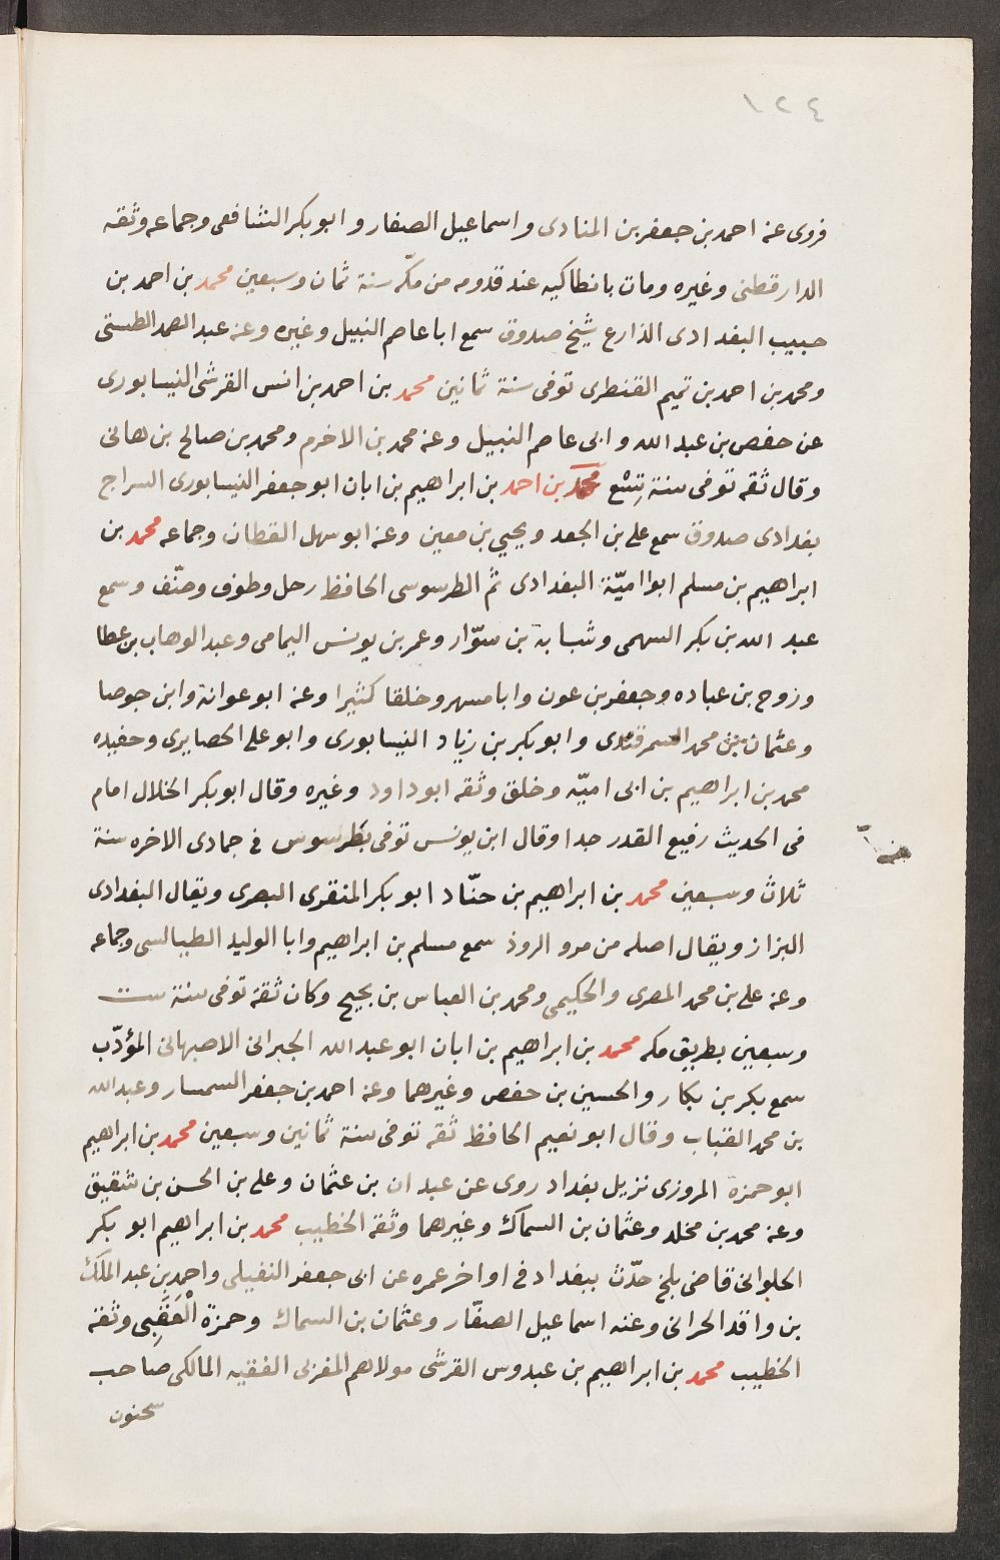 ١٢٤
فروى عنه احمد بن جعفر بن المنادى واسماعيل الصفار وابو بكر الشافعى وجماعه وثقه
الدارقطنى وغيره ومات بانطاكيه عند قدومه من مكّه سنة ثمان وسبعين محمد بن احمد بن
حبيب البغدادى الذارع شيخ صدوق سمع ابا عاصم النبيل وغيره وعنه عبد الصمد الطستى
ومحمد بن احمد بن تميم القنطرى توفى سنة ثمانين محمد بن احمد بن انس القرشى النيسابورى
عن حفص بن عبد الله وابى عاصم النبيل وعنه محمد بن الاخرم ومحمد بن صالح بن هانى
وقال ثقه توفى سنة تِسْع محمد بن احمد بن ابراهيم بن ابان ابو جعفر النيسابورى السراج
بغدادى صدوق سمع على بن الجعد ويحيي بن معين وعنه ابو سهل القطان وجماعه محمد بن
ابراهيم بن مسلم ابوا اميّة البغدادى ثمّ الطرسوسى الحافظ رحل وطوف وصنّف وسمع
عبد الله بن بكر السهمى وشبابة بن سوّار وعمر بن يونس اليمامى وعبد الوهاب بن عطا
وزوح بن عباده وجعفر بن عون وابا مسهر وخلقا كثيرا وعنه ابو عوانة وابن جوصا
وعثمان بن محمد السمرقندى وابو بكر بن زياد النيسابورى وابو على الحصايرى وحفيده
محمد بن ابراهيم بن ابى اميّه وخلق وثقه ابو داود وغيره وقال ابو بكر الخلال امام
فى الحديث رفيع القدر جدا وقال ابن يونس توفى بطرسوس فى جمادى الاخره سنة
ثلاث وسبعين محمد بن ابراهيم بن حنّاد ابو بكر المنقرى البصرى ويقال البغدادى
البزاز ويقال اصله من مرو الروذ سمع مسلم بن ابراهيم وابا الوليد الطيالسى وجماعه
وعنه على بن محمد المصرى والحكيمى ومحمد بن العباس بن بحيح وكان ثقة توفى سنة ست
وسبعين بطريق مكه محمد بن ابراهيم بن ابان ابو عبد الله الجبرانى الاصبهانى المؤدّب
سمع بكر بن بكار والحسين بن حفص وغيرهما وعنه احمد بن جعفر السمسار وعبد الله
بن محمد القباب وقال ابو نعيم الحافظ ثقه توفى سنة ثمانين وسبعين محمد بن ابراهيم
ابو حمزة المروزى نزيل بغداد روى عن عبدان بن عثمان وعلى بن الحسن بن شقيق
وعنه محمد بن مخلد وعثمان بن السماك وغيرهما وثقه الخطيب محمد بن ابراهيم ابو بكر
الحلوانى قاضى بلخ حدّث ببغداد فى اواخر عمره عن ابى جعفر النفيلى واحمد بن عبد الملك
بن واقد الحرانى وعنه اسماعيل الصفّار وعثمان بن السماك وحمزة الْعَقَبِى وثقه
الخطيب محمد بن ابراهيم بن عبدوس القرشى مولاهم المغربى الفقيه المالكى صاحب
سحنون